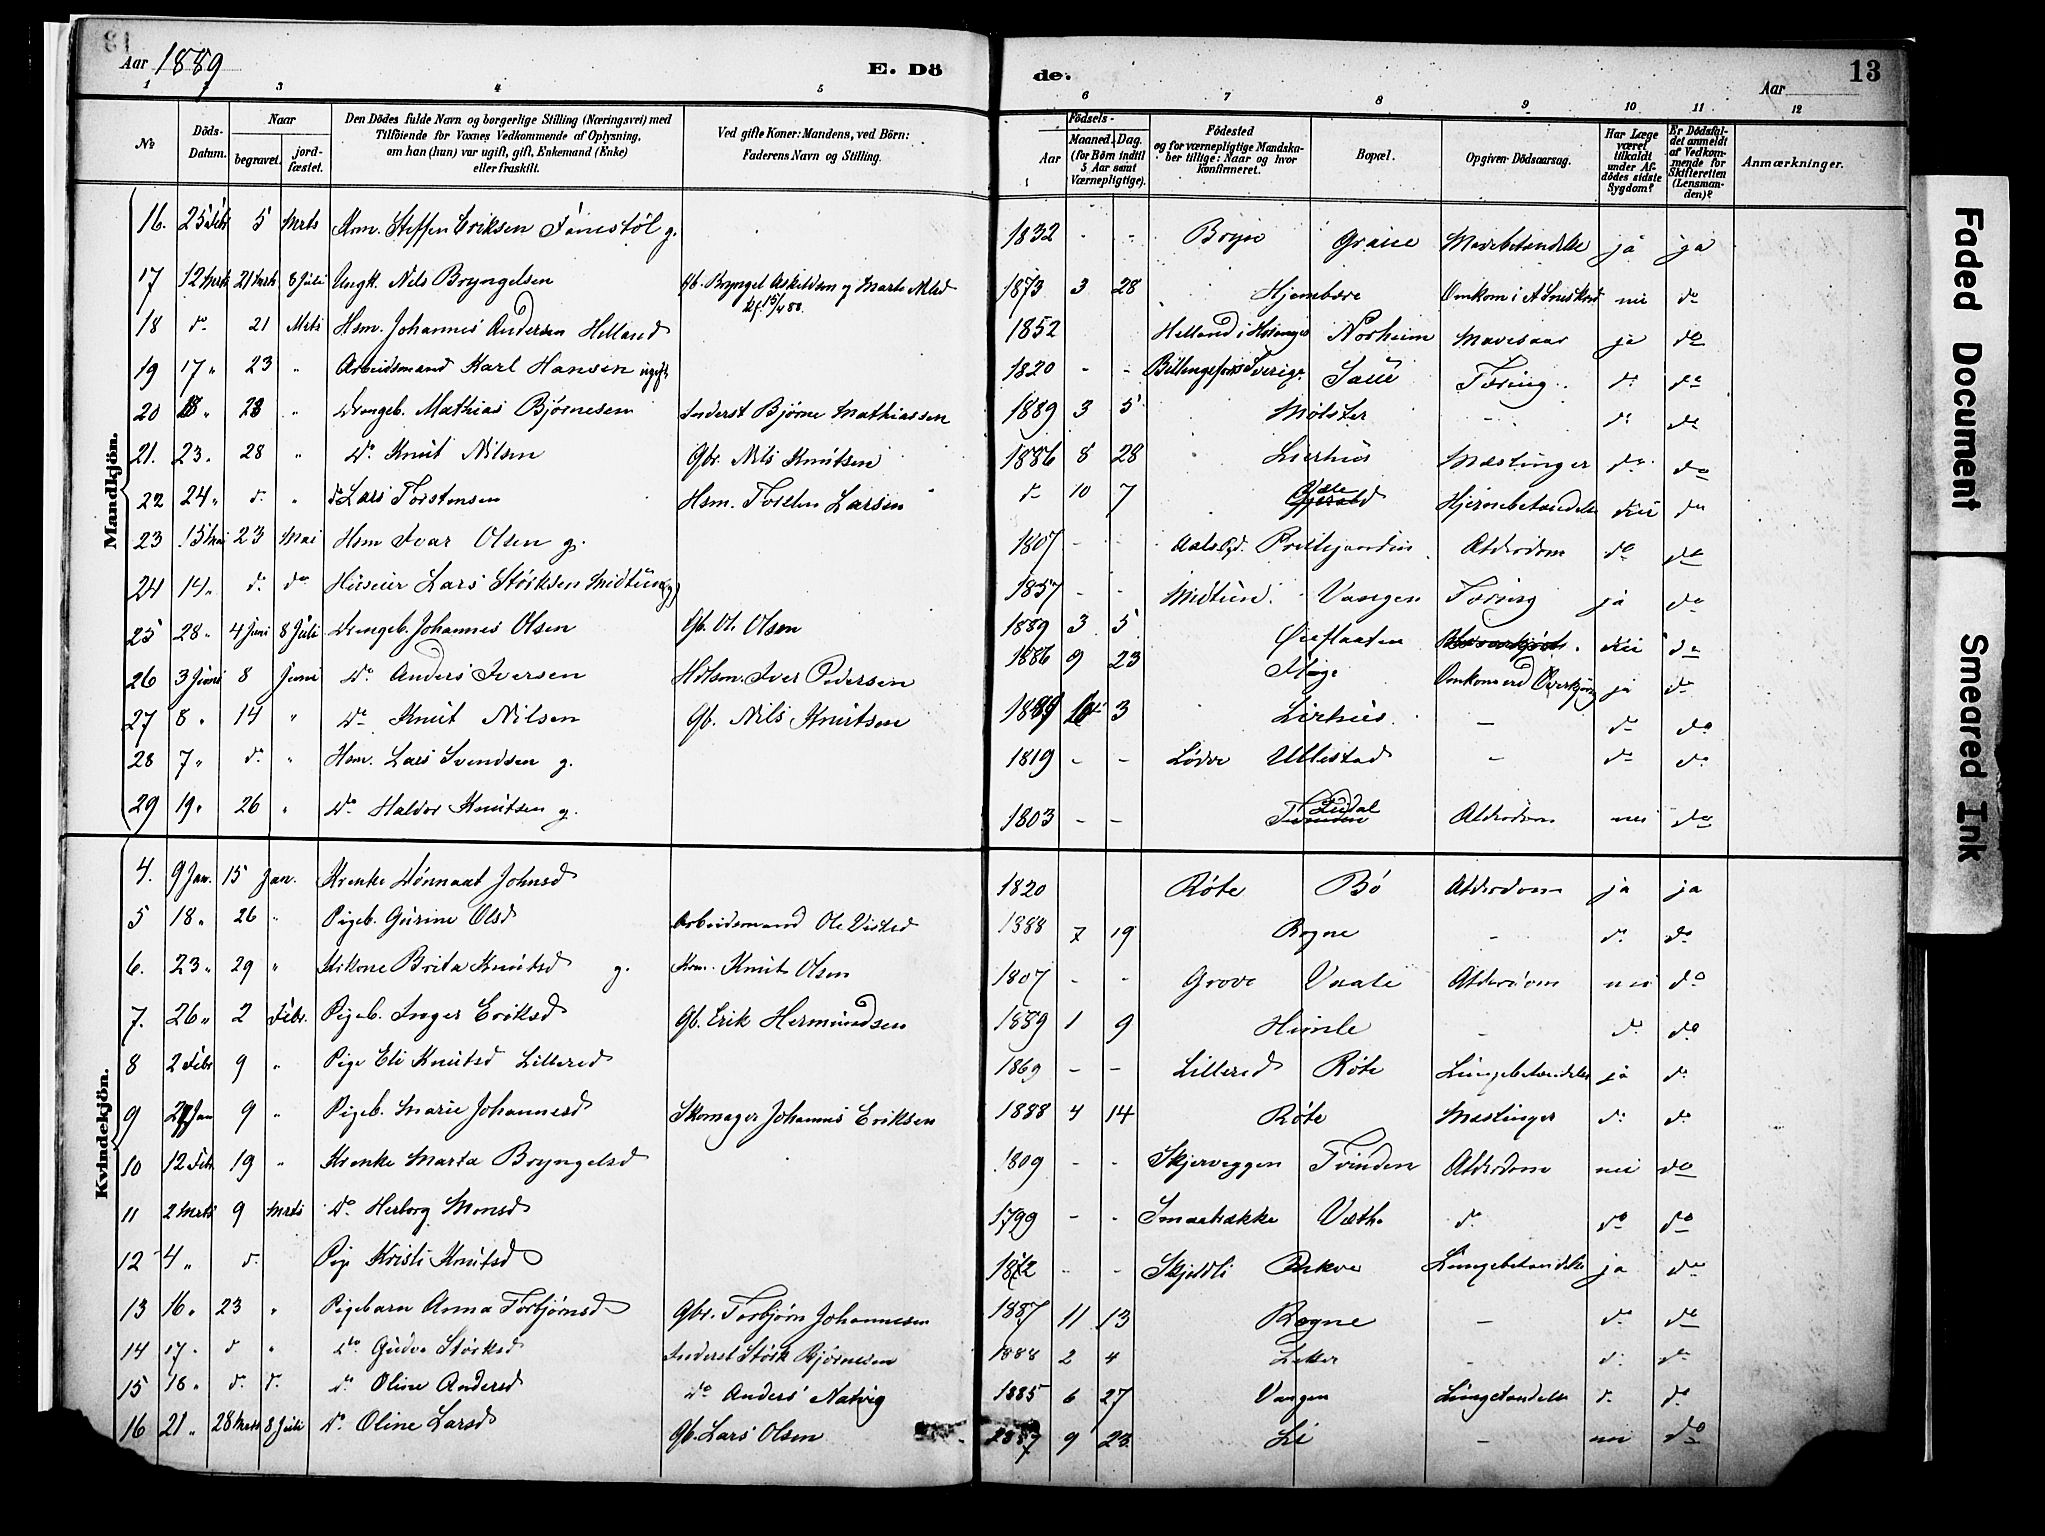 Aar 1889
E. Dö
de.
Aar
13
1 2 3 4 5 6 7 8 9 10 11 12
№
Döds-Datum.
Naar
begravet.
jord-fæstet.
Den Dödes fulde Navn og borgerlige Stilling (Næringsvei) med
Tilföiende for Voxnes Vedkommende af Oplysning,
om han (hun) var ugift, gift, Enkemand (Enke)
eller fraskilt.
Ved gifte Koner: Mandens, ved Börn:
Faderens Navn og Stilling.
Födsels-
Aar
Maaned. Dag.
(for Börn indtil
5 Aar samt
Værnepligtige).
Födested
og for værnepligtige Mandska-
ber tillige: Naar og hvor
konfirmeret.
Bopæl.
Opgiven Dödsaarsag.
Har Læge
været
tilkaldt
under Af-
dödes sidste
Sygdom?
Er Dödsfal-
det anmeldt
af Vedkom-
mende for
Skifteretten
(Lensman-
den)?
Anmærkninger.
Mandkjön.
16. 25 Febr 5 Mrts Hsm. Steffen Eriksen Fenestøl g. 1832 - - Bryn Graue Mavebetændelse ja ja
17 12 Mrts 21 Mrts 8 Juli Ungk. Nils Bryngelsen Gb. Bryngel Askildsen og Marta Nilsd 1873 3 28 Hjembære Omkom i nei do
18 do 21 Mrts Hsm. Johannes Andersen Helland 1852 Helland i Norheim Mavesaar ja do
19 17 " 23 " Arbeidsmand Karl Hansen ugift 1820 - - Billingsfors Sverige Saue Tæring. do do
20 18 " 28 " Drengeb. Mathias Bjørnesen Inderst Bjørne Mathiassen 1889 3 5 Mølster - do do
21. 23 " 28 " do Knut Nilsen Gbr. Nils Knutsen 1886 8 28 Lierhus Mæslinger do do
22 24 " do " do Lars Torstensen Hsm. Torsten Larsen do 10 7 Hjernebetændelse nei do
23 15 Mai 23 Mai Hsm Ivar Olsen g. 1807 - - Aals Pgd. Alderdom do do
24 14 " do do Huseier Lars Størksen Midtun (g) 1857 - - Midtun. Vangen Tæring ja do
25 28 " 4 Juni 8 Juli Drengeb. Johannes Olsen Gb. Ole Olsen 1889 3 5 Øieflaaten nei do
26 3 Juni 8 Juni do Anders Iversen Iver Pedersen 1886 9 23 Omkom ved Overkjøring ja do
27 8 " 14 " do Knut Nilsen Gb. Nils Knutsen 1889 3 Lirhus. - do do
28 7 " do " Hsm. Lars Svendsen g. 1819 - - Løden Ullestad - do do
29 19 " 26 " do Haldor Knutsen g. 1803 - - Alderdom nei do
Kvindekjön.
4. 9 Jan. 15 Jan. Krenke Dønnaat Johnsd 1820 Røte Bø Alderdom ja ja
5 18 " 26 " Pigeb. Gurine Olsd Arbeidsmand Ole Visted 1888 7 19 Rogne - do do
6. 23 " 29 " Kikone Brita Knutsd g. Km. Knut Olsen 1807 - - Grove Alderdom nei do
7. 26 " 2 Febr. Pigeb. Inger Eriksd Gb. Erik Hermundsen 1889 1 9 Himle - do do
8 2 Febr 9 " Pige Eli Knutsd Lillered 1869 - - Lillered Røte Lungebetændelse ja do
9 27 Jan 9 " Pigeb. Marie Johannesd Skomager Johannes Eriksen 1888 4 14 Røte Mæslinger do do
10 12 Febr 19 " Krenke Marta Bryngelsd 1809 - - Skjerveggen Tvinden Alderdom nei do
11 2 Mrts 9 Mrts do Herborg Monsd 1799 - - Smaabække Væthe do do do
12 4 " do Pige Kristi Knutsd 1872 - - Skjeldli Rekve Lungebetændelse ja do
13 16 " 23 " Pigebarn Anna Torbjørnsd Gbr. Torbjørn Johannesen 1887 11 13 Rogne - do do
14 17 " do " do Gudve Størksd Inderst Størk Bjørnesen 1888 2 4 - do do
15 18 " do do do Oline Andersd do Anders Natvig 1885 6 27 Vangen do do
16 21 " 28 Mrts 8 Juli do Oline Larsd Gb. Lars Olsen 1887 9 23 Li - nei do
Faded Document
Smeared Ink